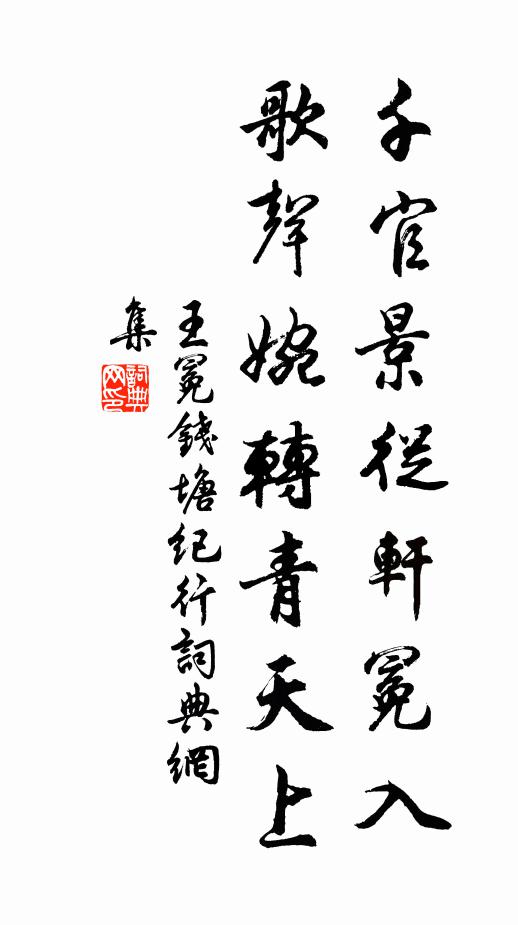 千官景從軒冕入
歌聲婉轉青天上
王冕錢塘紀行詞典網
集
詞典
网印